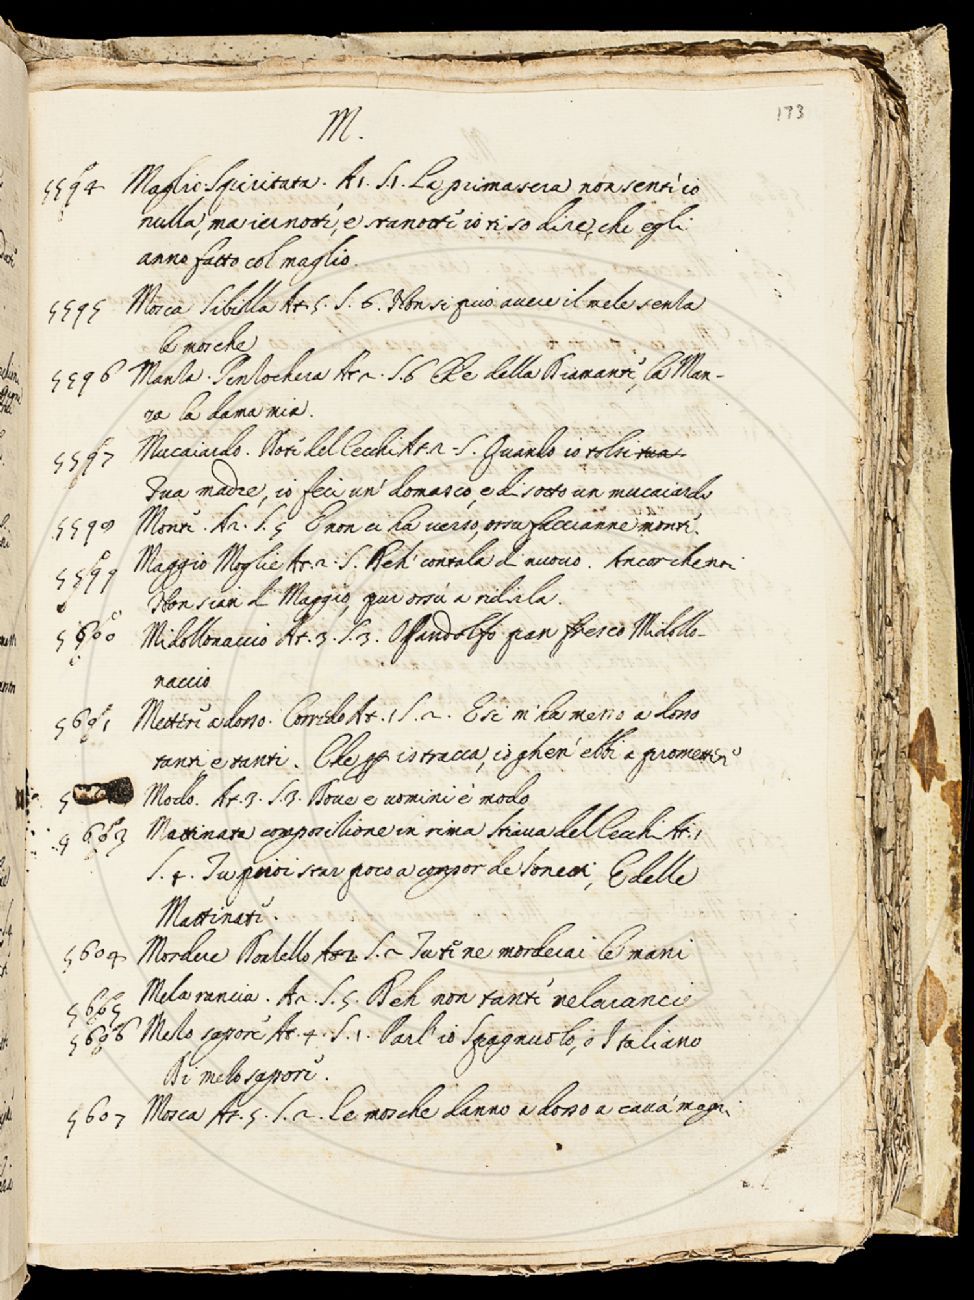 M.
173
5594 Maglio. Spiritata. At. S1. La prima sera non senti io
nulla, ma iernotte, e stanotte io ti so dire, che egli
anno fatto col maglio.
5595 Mosca Sibilla At. 5. S. 6. Non si può avere il mele senza
le mosche
5596 Manza. Pinzochera At. 2. S. 6 Ch'è della Diamante, la Man-
za la dama mia.
5597 Mucaiardo. Dote del Cecchi At. 2. S. Quando io tolsi tua
Tua madre, io feci un' domasco, e di sotto un mucaiardo
5598 Monte. A2. S. 5 E non ci ha verso, orsu faccianne monte.
5599 Maggio Moglie At. 2. S. Deh' contala di nuovo. Ancor che noi
Non sian di Maggio, pur orsù a ridirla.
5600 Midollonaccio At. 3. S. 3. O Pandolfo pian fresco Midollo-
naccio
5601 Mettere a dosso. Corredo At. 1 S. 2. E se m'ha messo a dosso
tanti e tanti. Che io stracca, io ghen' ebbi a promettere
5 Modo. At. 3. S. 3. Dove e uomini è modo
5603 Mattinata composizione in rima Stiava del Cecchi At. 1
S. 4. Tu puoi star poco a compor de Sonetti, E delle
Mattinate.
5604 Mordere Donzello At2 S. 2 Tu te ne morderai le mani
5605 Mela rancia. A2. S. 5. Deh non tante melarancie
5606 Melo sapore At. 4. S. 1. Parl' io Spagnuolo, o Italiano
Di melo sapore.
5607 Mosca At. 5. S. 2. Le mosche danno a dosso a cava' magri